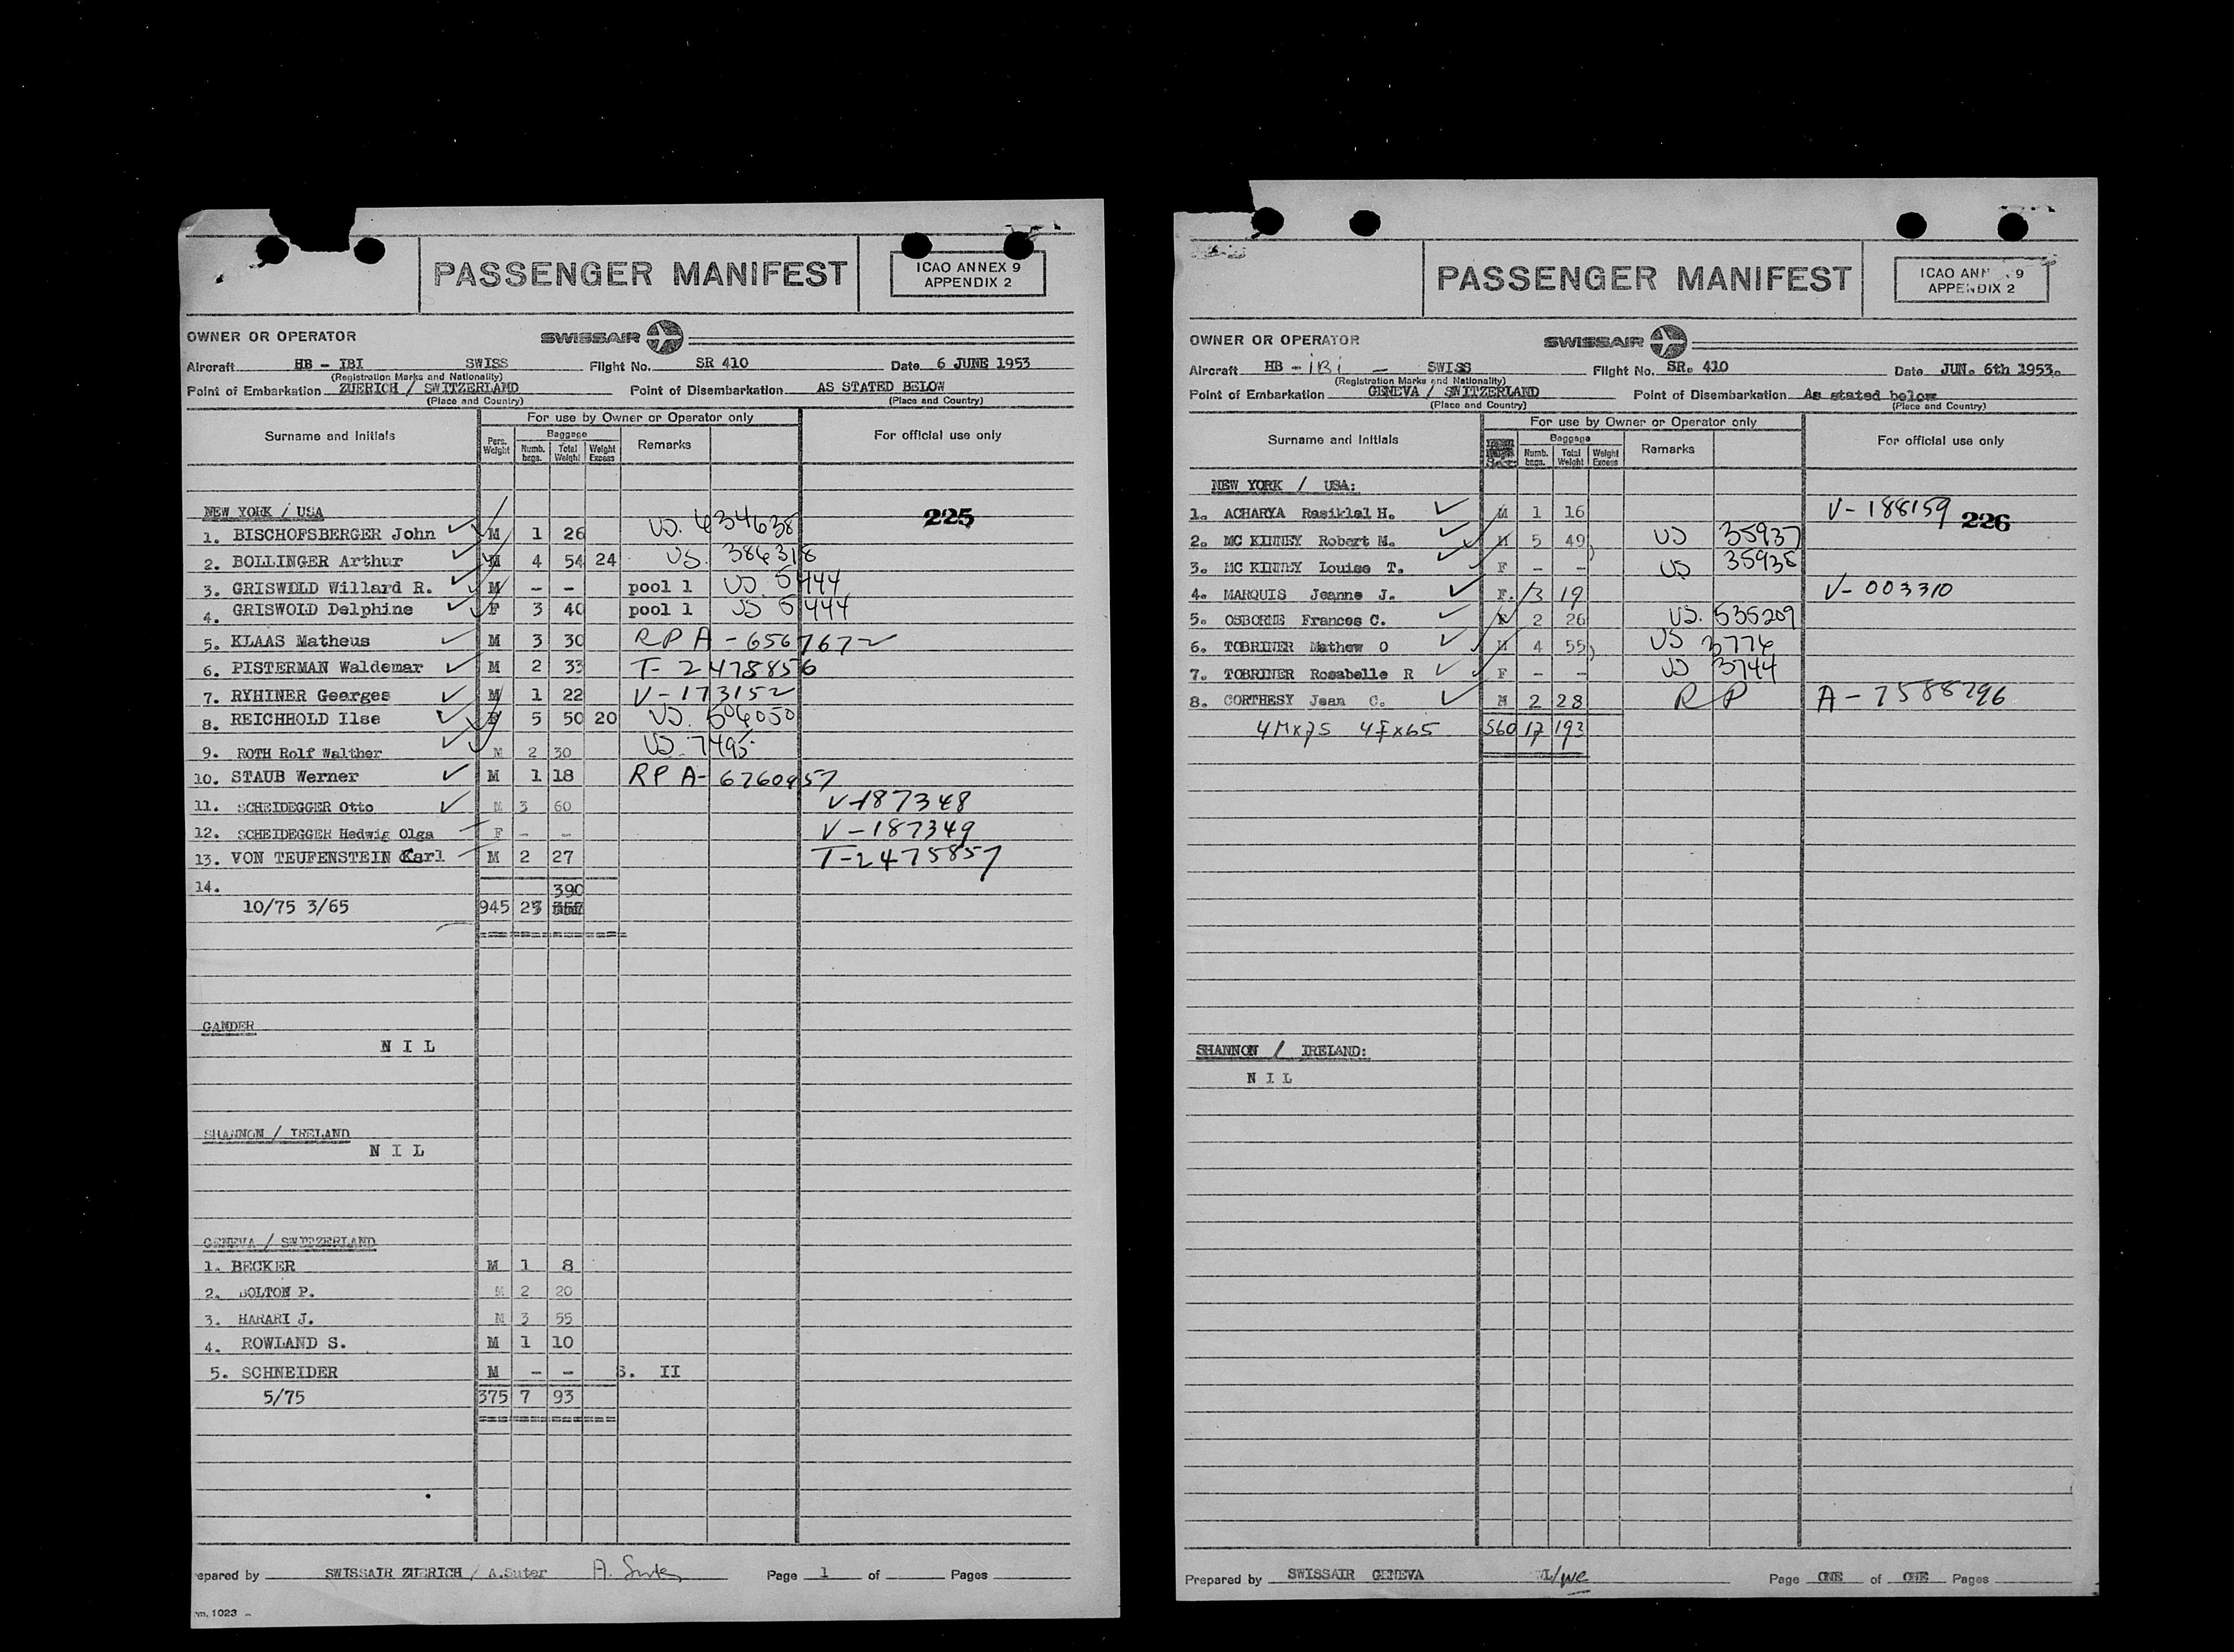 PASSENGER MANIFEST
ICAO ANNEX 9
APPENDIX 2
OWNER OR OPERATOR SWISSAIR
Aircraft HB - IBI SWISS Flight No. SR 410 Date 6 JUNE 1953
(Registration Marks and Nationality)
Point of Embarkation ZUERICH / SWITZERLAND Point of Disembarkation AS STATED BELOW
(Place and Country) (Place and Country)
For use by Owner or Operator only
Surname and Initials Pers. Weight Baggage Numb. bags. Total Weight Weight Excess Remarks For official use only
NEW YORK / USA 225
1. BISCHOFSBERGER John M 1 26 US. 434638
2. BOLLINGER Arthur M 4 54 24 US. 386318
3. GRISWOLD Willard R. M - - pool 1 US. 5444
4. GRISWOLD Delphine F 3 40 pool 1 US 5444
5. KLAAS Matheus M 3 30 RP A-6567672
6. PISTERMAN Waldemar M 2 33 T-2475856
7. RYHINER Georges M 1 22 V-173152
8. REICHHOLD Ilse F 5 50 20 US. 504050
9. ROTH Rolf Walther M 2 30 US. 7495
10. STAUB Werner M 1 18 RP A-6760957
11. SCHEIDEGGER Otto M 3 60 V-187348
12. SCHEIDEGGER Hedwig Olga F - - V-187349
13. VON TEUFENSTEIN Karl M 2 27 T-2475857
14. 390
10/75 3/65 945 27
GANDER
N I L
SHANNON / IRELAND
N I L
GENEVA / SWITZERLAND
1. BECKER M 1 8
2. BOLTON P. M 2 20
3. HARARI J. M 3 55
4. ROWLAND S. M 1 10
5. SCHNEIDER M - - S. II
5/75 375 7 93
epared by SWISSAIR ZUERICH / A.Suter A. Suter Page 1 of Pages
rm. 1023
PASSENGER MANIFEST
ICAO ANN 9
APPENDIX 2
OWNER OR OPERATOR SWISSAIR
Aircraft HB - iBi - SWISS Flight No. SR. 410 Date JUN. 6th 1953.
(Registration Marks and Nationality)
Point of Embarkation GENEVA / SWITZERLAND Point of Disembarkation As stated below
(Place and Country) (Place and Country)
For use by Owner or Operator only
Surname and Initials Sex Baggage Numb. bags. Total Weight Weight Excess Remarks For official use only
NEW YORK / USA:
1. ACHARYA Rasiklal H. M 1 16 V-188159 226
2. MC KINNEY Robert M. M 5 49 US 35937
3. MC KINNEY Louise T. F - - US 35938
4. MARQUIS Jeanne J. F. 3 19 V-003310
5. OSBORNE Frances C. F 2 26 US. 535209
6. TOBRINER Mathew O M 4 55 US 3774
7. TOBRINER Rosabelle R F - - US 3744
8. CORTHESY Jean C. M 2 28 RP A-7588296
4Mx75 4Fx65 560 17 193
SHANNON / IRELAND:
N I L
Prepared by SWISSAIR GENEVA Page ONE of ONE Pages